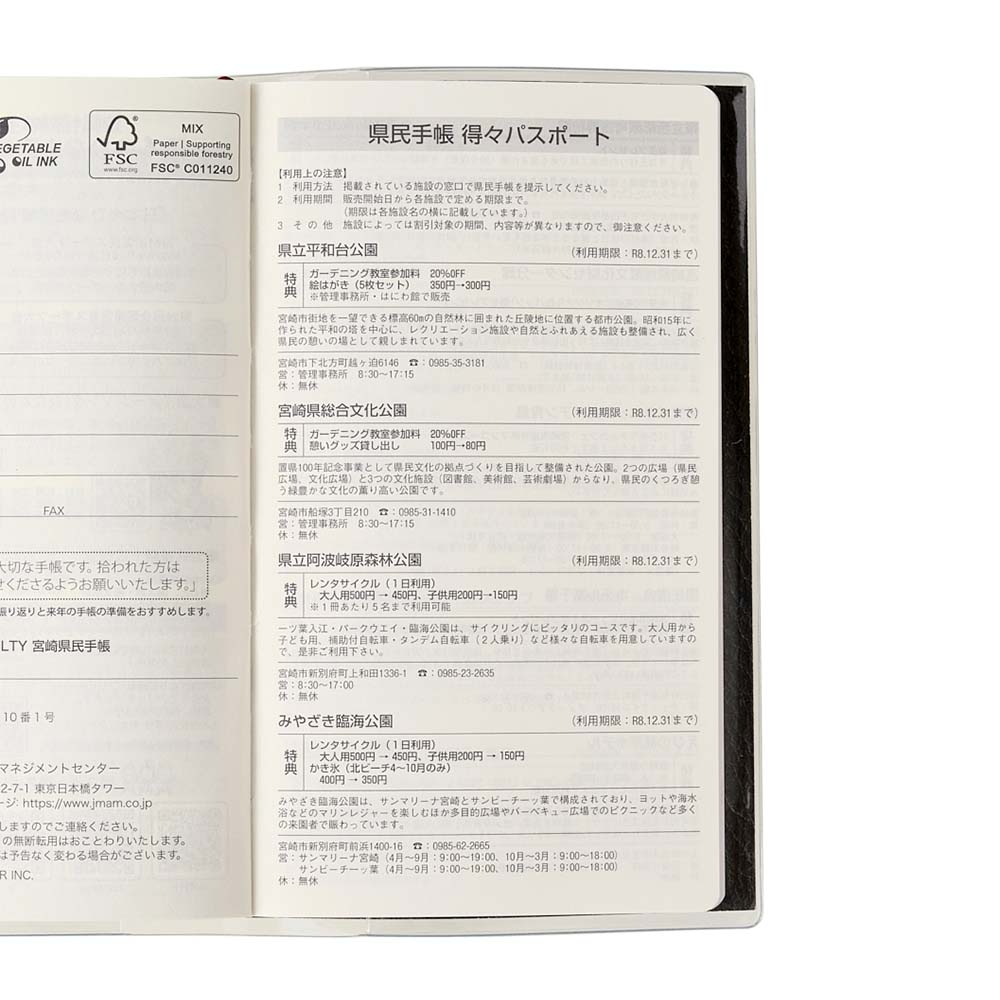 EGETABLE
OIL INK
FSC
www.fsc.org
MIX
Paper | Supporting
responsible forestry
FSC® C011240
FAX
大切な手帳です。拾われた方は
せくださるようお願いいたします。」
振り返りと来年の手帳の準備をおすすめします。
LTY 宮崎県民手帳
10番1号
マネジメントセンター
2-7-1 東京日本橋タワー
ージ: https://www.jmam.co.jp
しますのでご連絡ください。
の無断転用はおことわりいたします。
は予告なく変わる場合がございます。
R INC.
県民手帳 得々パスポート
【利用上の注意】
1 利用方法 掲載されている施設の窓口で県民手帳を提示してください。
2 利用期間 販売開始日から各施設で定める期限まで。
(期限は各施設名の横に記載しています。)
3 その他 施設によっては割引対象の期間、内容等が異なりますので、御注意ください。
県立平和台公園 (利用期限:R8.12.31まで)
特典
ガーデニング教室参加料 20%OFF
絵はがき(5枚セット) 350円→300円
※管理事務所・はにわ館で販売
宮崎市街地を一望できる標高60mの自然林に囲まれた丘陵地に位置する都市公園。昭和15年に
作られた平和の塔を中心に、レクリエーション施設や自然とふれあえる施設も整備され、広く
県民の憩いの場として親しまれています。
宮崎市下北方町越ヶ迫6146 ☎:0985-35-3181
営:管理事務所 8:30〜17:15
休:無休
宮崎県総合文化公園 (利用期限:R8.12.31まで)
特典
ガーデニング教室参加料 20%OFF
憩いグッズ貸し出し 100円→80円
置県100年記念事業として県民文化の拠点づくりを目指して整備された公園。2つの広場(県民
広場、文化広場)と3つの文化施設(図書館、美術館、芸術劇場)からなり、県民のくつろぎ憩
う緑豊かな文化の薫り高い公園です。
宮崎市船塚3丁目210 ☎:0985-31-1410
営:管理事務所 8:30〜17:15
休:無休
県立阿波岐原森林公園 (利用期限:R8.12.31まで)
特典
レンタサイクル(1日利用)
大人用500円 → 450円、子供用200円→150円
※1冊あたり5名まで利用可能
一ツ葉入江・パークウエイ・臨海公園は、サイクリングにピッタリのコースです。大人用から
子ども用、補助付自転車・タンデム自転車(2人乗り)など様々な自転車を用意していますの
で、是非ご利用下さい。
宮崎市新別府町上和田1336-1 ☎:0985-23-2635
営:8:30〜17:00
休:無休
みやざき臨海公園 (利用期限:R8.12.31まで)
特典
レンタサイクル(1日利用)
大人用500円 → 450円、子供用200円 → 150円
かき氷(北ビーチ4〜10月のみ)
400円 → 350円
みやざき臨海公園は、サンマリーナ宮崎とサンビーチ一ッ葉で構成されており、ヨットや海水
浴などのマリンレジャーを楽しむほか多目的広場やバーベキュー広場でのピクニックなど多く
の来園者で賑わっています。
宮崎市新別府町前浜1400-16 ☎:0985-62-2665
営:サンマリーナ宮崎(4月〜9月:9:00〜19:00、10月〜3月:9:00〜18:00)
サンビーチ一ッ葉(4月〜9月:9:00〜19:00、10月〜3月:9:00〜18:00)
休:無休